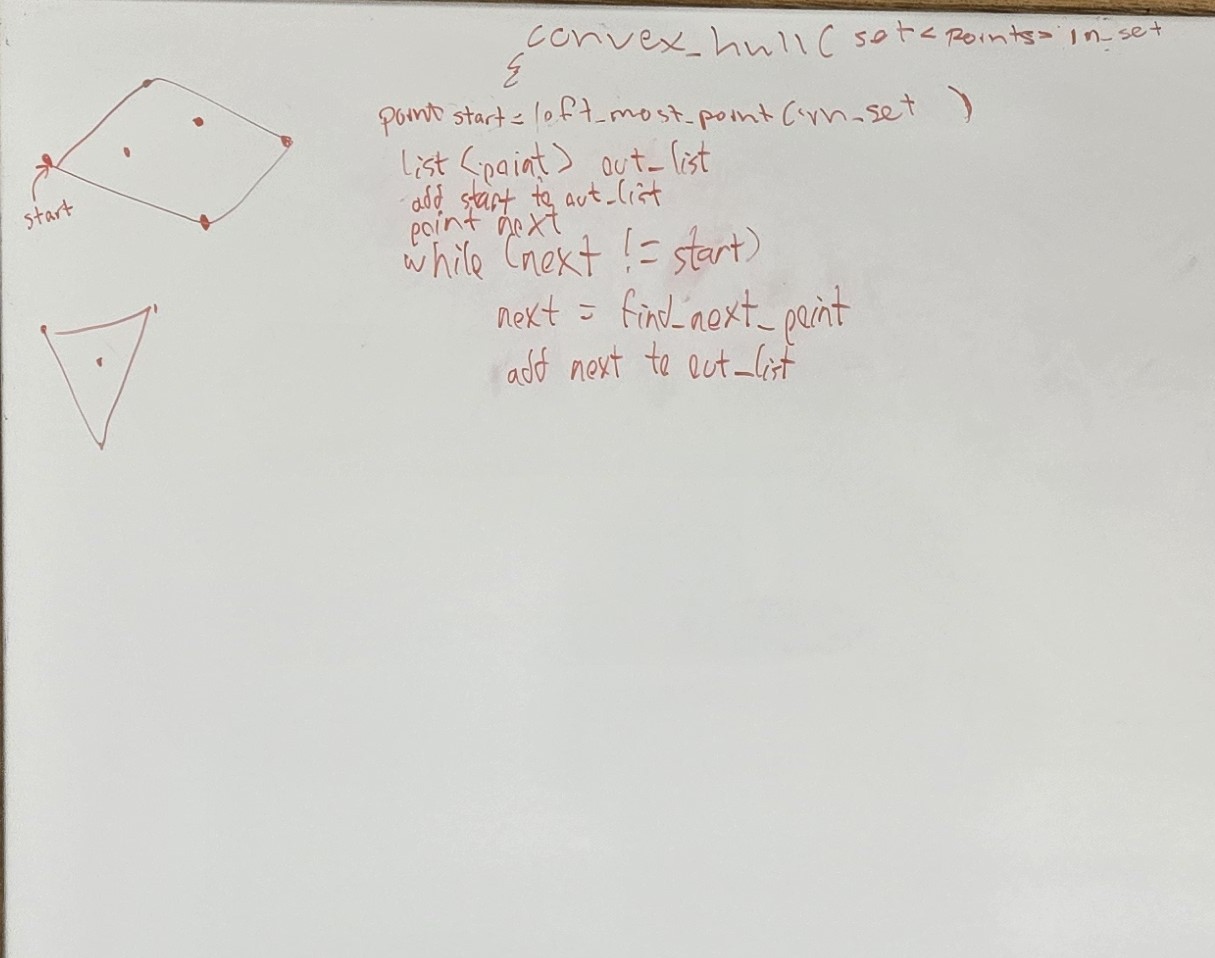 convex_hull( set<points> in_set
{
point start = left_most_point(in_set )
list <point> out_list
add start to out_list
point next
while (next != start)
next = find_next_point
add next to out_list
start